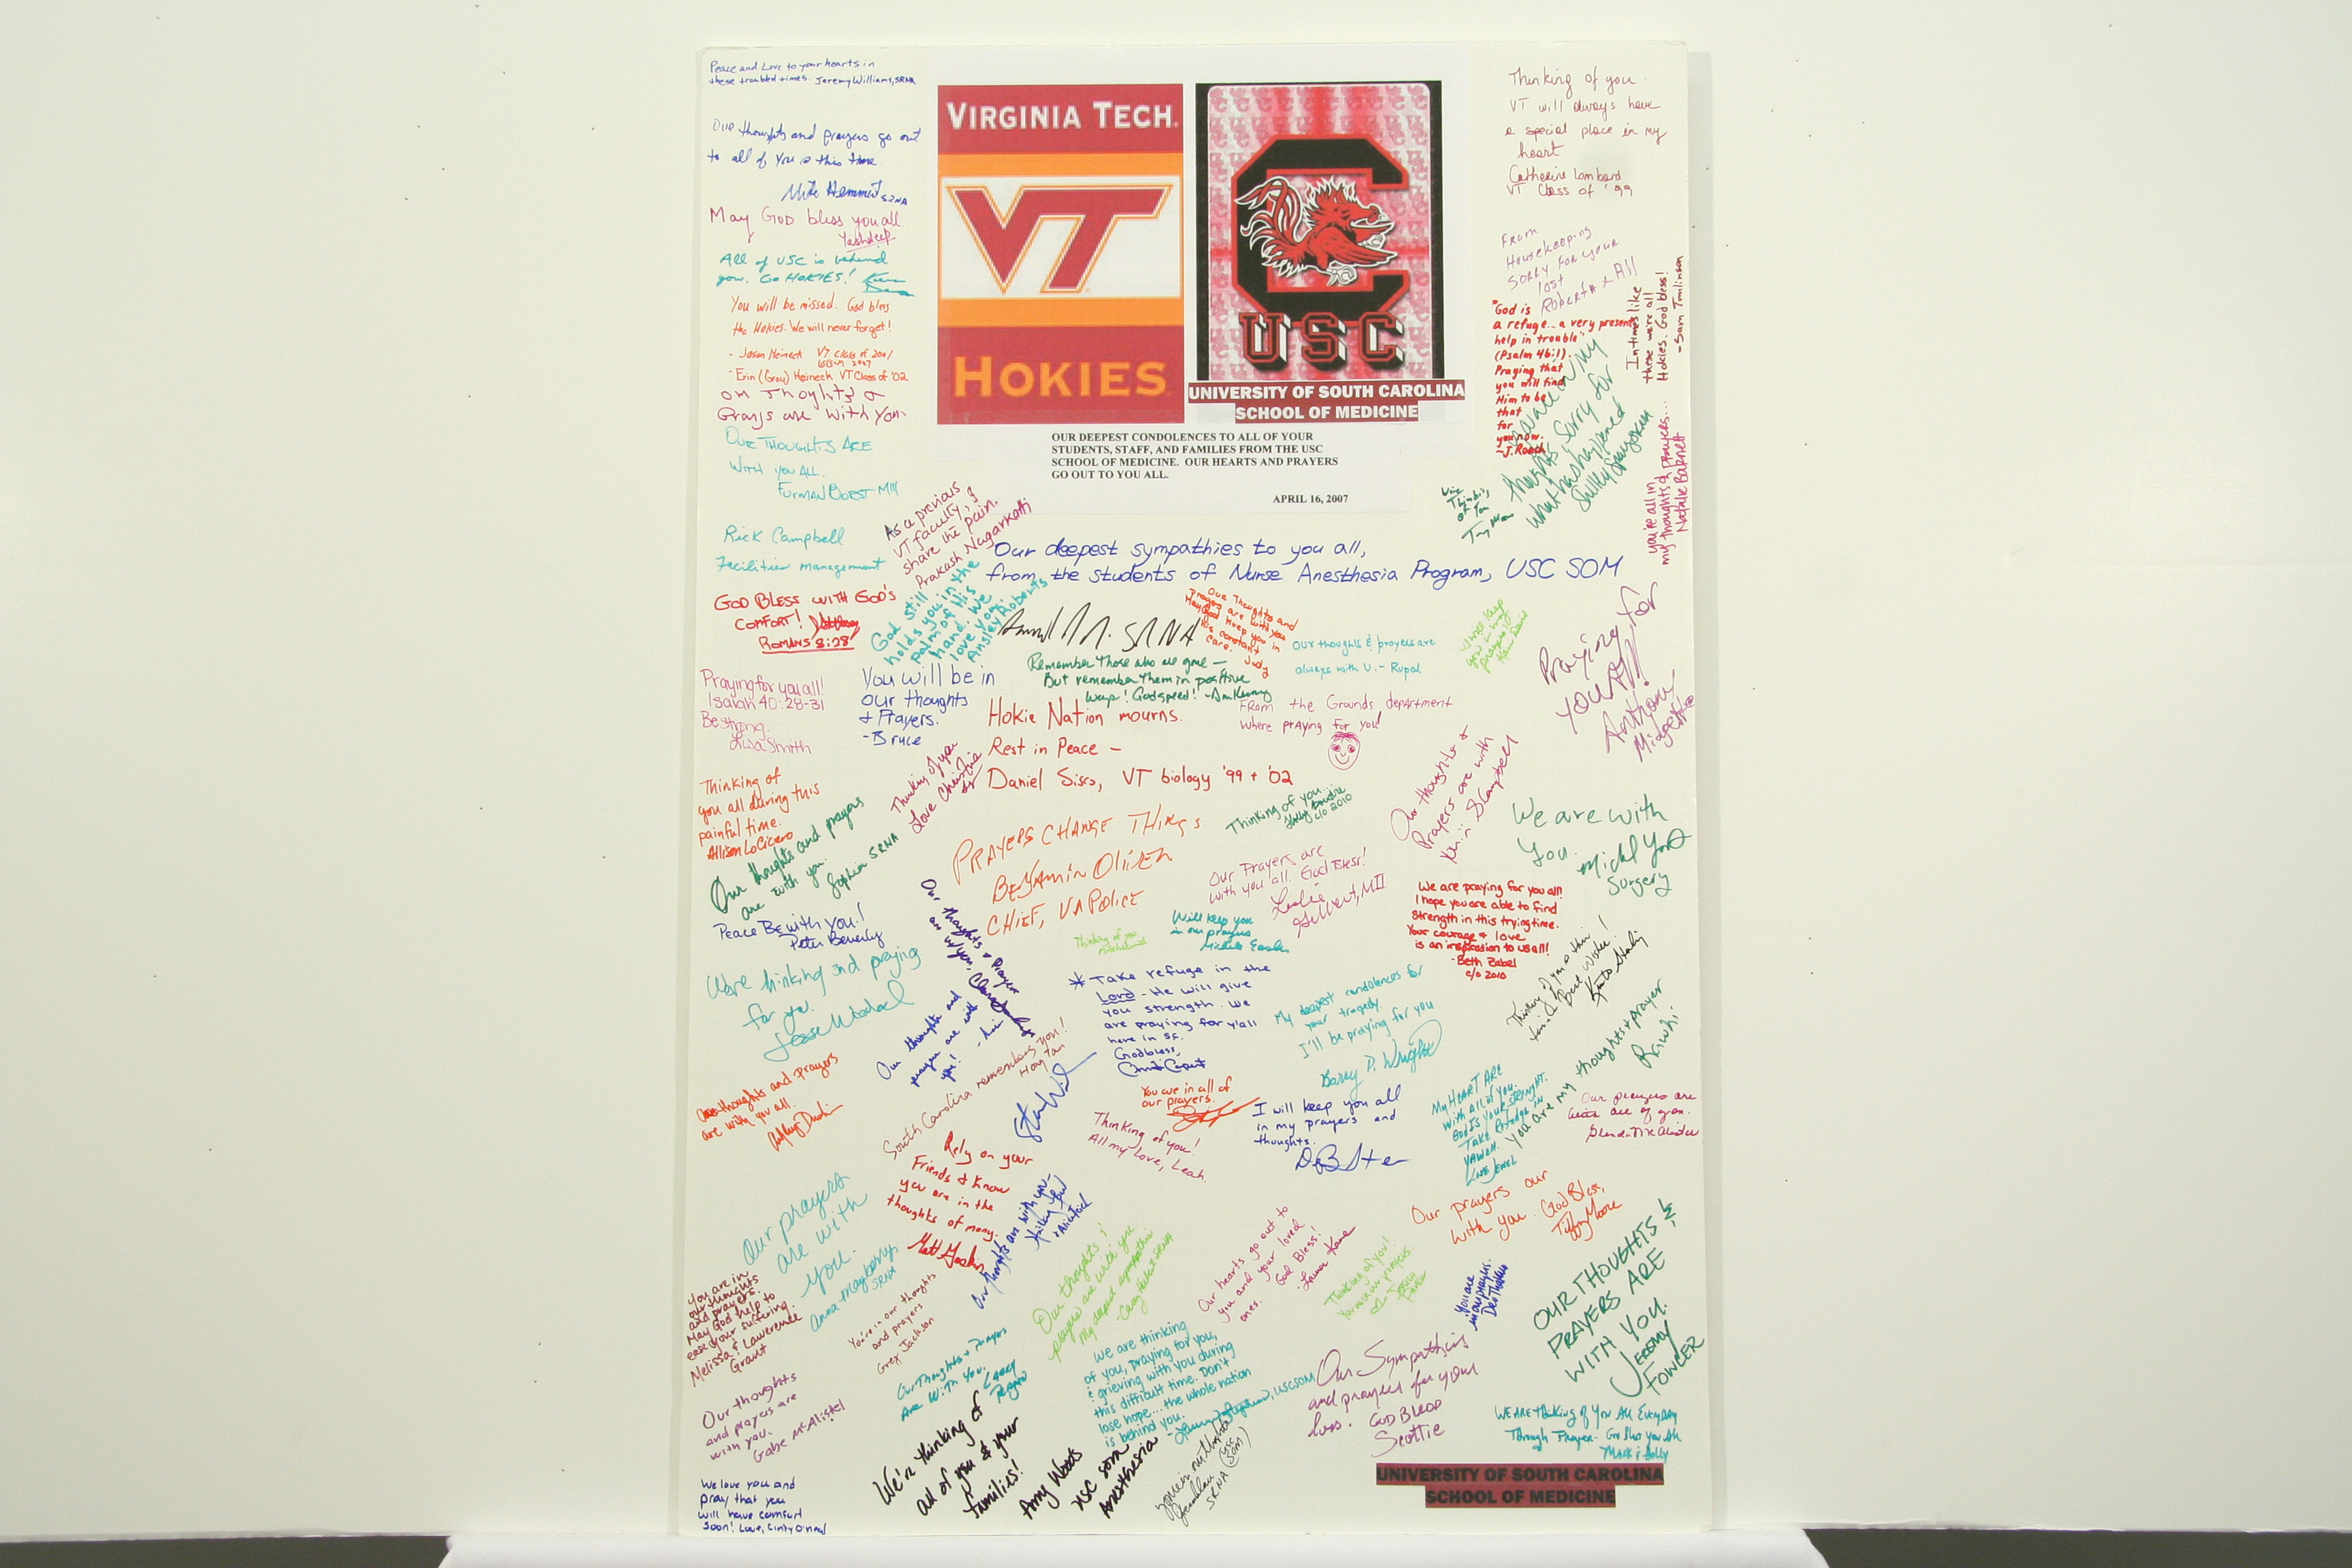 Peace and Love to your hearts in
these troubled times. Jeremy Williams, SRNA
Our thoughts and prayers go out
to all of you this time
Mike Hemmert SRNA
May GOD bless you all.
Yashdeep
All of USC is behind
you. Go HOKIES!
You will be missed. God bless
the Hokies. We will never forget!
- Jason Heineck VT Class of 2001
USCSOM 2007
- Erin (Gray) Heineck VT Class of '02
our Thoghts &
Prays are with you
OUR THOUGHTS ARE
WITH YOU ALL.
Rick Campbell
Facilities management
GOD BLESS WITH GOD'S
COMFORT!
ROMANS 8:28
Praying for you all!
Isaiah 40:28-31
Be strong.
Lisa Smith
Thinking of
you all during this
painful time.
Allison LoCicero
Our thoughts and prayers
are with you.
Sophia SRNA
PEACE BE with YOU!
Peter Beverly
We're thinking and praying
for you.
Our thoughts and prayers
are with you all.
Our prayers
are with
you.
Anna Mayberry
SRNA
You are in
our thoughts
and prayers.
May God help to
ease your suffering.
Melissa & Lawerence
Grant
Our thoughts
and prayers are
with you.
Gabe McAlistel
We love you and
pray that you
will have comfort
soon! Love, Cindy O'neal
VIRGINIA TECH.
VT
HOKIES
USC
UNIVERSITY OF SOUTH CAROLINA
SCHOOL OF MEDICINE
OUR DEEPEST CONDOLENCES TO ALL OF YOUR
STUDENTS, STAFF, AND FAMILIES FROM THE USC
SCHOOL OF MEDICINE. OUR HEARTS AND PRAYERS
GO OUT TO YOU ALL.
APRIL 16, 2007
As a previous
VT faculty, I
share the pain.
Prakash Nagarkatti
God still
holds you in the
palm of His
hand. We
love you.
Ansley Roberts
Our deepest sympathies to you all,
from the students of Nurse Anesthesia Program, USC SOM
SRNA
Our Thoughts and
prayers are with you
May God keep you in
His constant
care. Judy
Our thoughts & prayers are
always with U. - Rupal
Remember those who are gone -
But remember them in positive
ways! Godspeed!
You will be in
our thoughts
& Prayers.
- Bruce
Hokie Nation mourns.
Rest in Peace -
Daniel Sisco, VT biology '99 + '02
FROM the Grounds department
where praying for you!
Thinking of you
Love Christine
PRAYERS CHANGE THINGS
BENJAMIN OLIVER
CHIEF, VA POLICE
Thinking of you...
c/o 2010
Our thoughts &
Prayers are with
Campbell
Our Prayers are
with you all. God Bless!
Leslie Gilbert, MII
Will keep you
in our prayers
Thinking of you
Our thoughts & prayer
are w/ you.
Our thoughts and
prayers are with
you!
* Take refuge in the
Lord - He will give
you strength. We
are praying for y'all
here in SC.
Godbless,
My deepest condolences for
your tragedy.
I'll be praying for you
Barry P. Wright
South Carolina remembers you!
You are in all of
our prayers.
Thinking of you!
All my love, Leah
I will keep you all
in my prayers and
thoughts.
Rely on your
Friends & Know
you are in the
thoughts of many.
Our thoughts are with you
You're in our thoughts
and prayers
Greg Jackson
Our Thoughts & Prayers
Are With You.
Our thoughts &
prayers are with you
My deepest sympathies
Our hearts go out to
you and your loved
ones. God Bless!
- Laura Kane
Thinking of you!
You're in our prayers
We are thinking
of you, praying for you,
& grieving with you during
this difficult time. Don't
lose hope... the whole nation
is behind you.
USCSOM
We're thinking of
all of you & your
families!
Amy Woods
USC SOM
Anesthesia
You're in our thoughts
SRNA (USC SOM)
Our Sympathies
and prayers for your
loss. GOD BLESS
Scottie
Thinking of you
VT will always have
a special place in my
heart
Catherine Lombard
VT Class of '99
From
Housekeeping
Sorry for your
lost
Roberta & All
"God is
a refuge... a very present
help in trouble"
(Psalm 46:1).
Praying that
you will find
Him to be
that
for
you now.
- J. Roach
In times like
these we're all
Hokies. God bless!
- Sam Tomlinson
You are in my
thoughts, Sorry for
what has happened
you're all in
my thoughts & prayers...
Natalie Barnett
Thinking
of You
I will keep
you in my
prayers
Praying for
you All!
Anthony
Midgette
We are with
You.
Surgery
We are praying for you all!
I hope you are able to find
strength in this trying time.
Your courage & love
is an inspiration to us all!
- Beth Zabel
c/o 2010
Thinking of you @ this
time! Best Wishes!
You are in my thoughts & prayer
Rawhi
My HEART ARE
With all of you.
God is your strenght.
Take Refuge in
YAWEH.
Love Jewel
Our prayers are
with all of you.
Our prayers our
with you God Bless,
Tiffany Moore
You are
in our prayers.
OUR THOUGHTS &
PRAYERS ARE
WITH YOU.
JEREMY
FOWLER
WE ARE thinking of You All Everyday
Through Prayer - God Bless you All
Mack & Dolly
UNIVERSITY OF SOUTH CAROLINA
SCHOOL OF MEDICINE